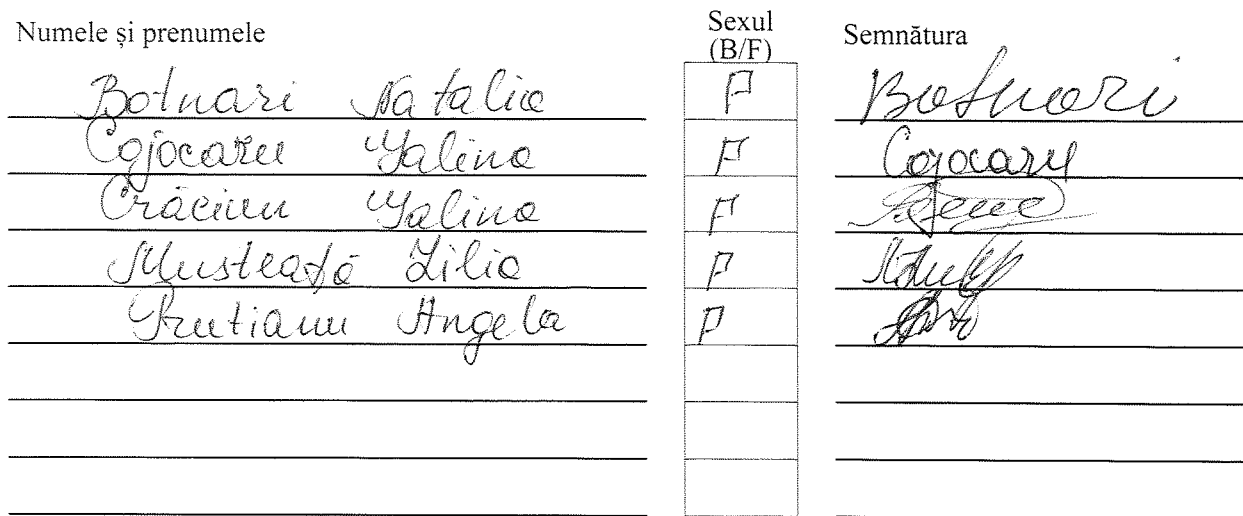 Numele și prenumele Sexul (B/F) Semnătura
Botnari Natalia F Botnari
Cojocaru Galina F Cojocaru
Crăciun Galina F
Musteață Lilia F
Prutianu Angela F